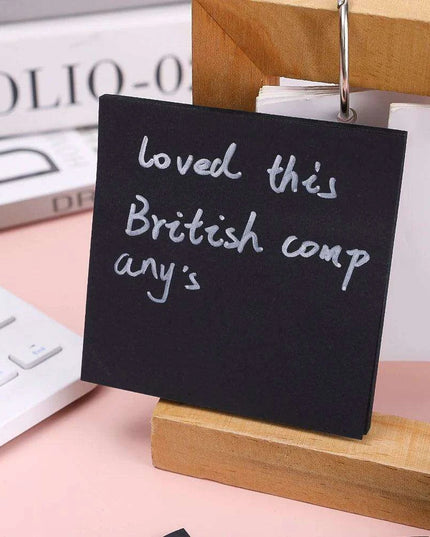 OLIO-0
loved this
British comp
any's